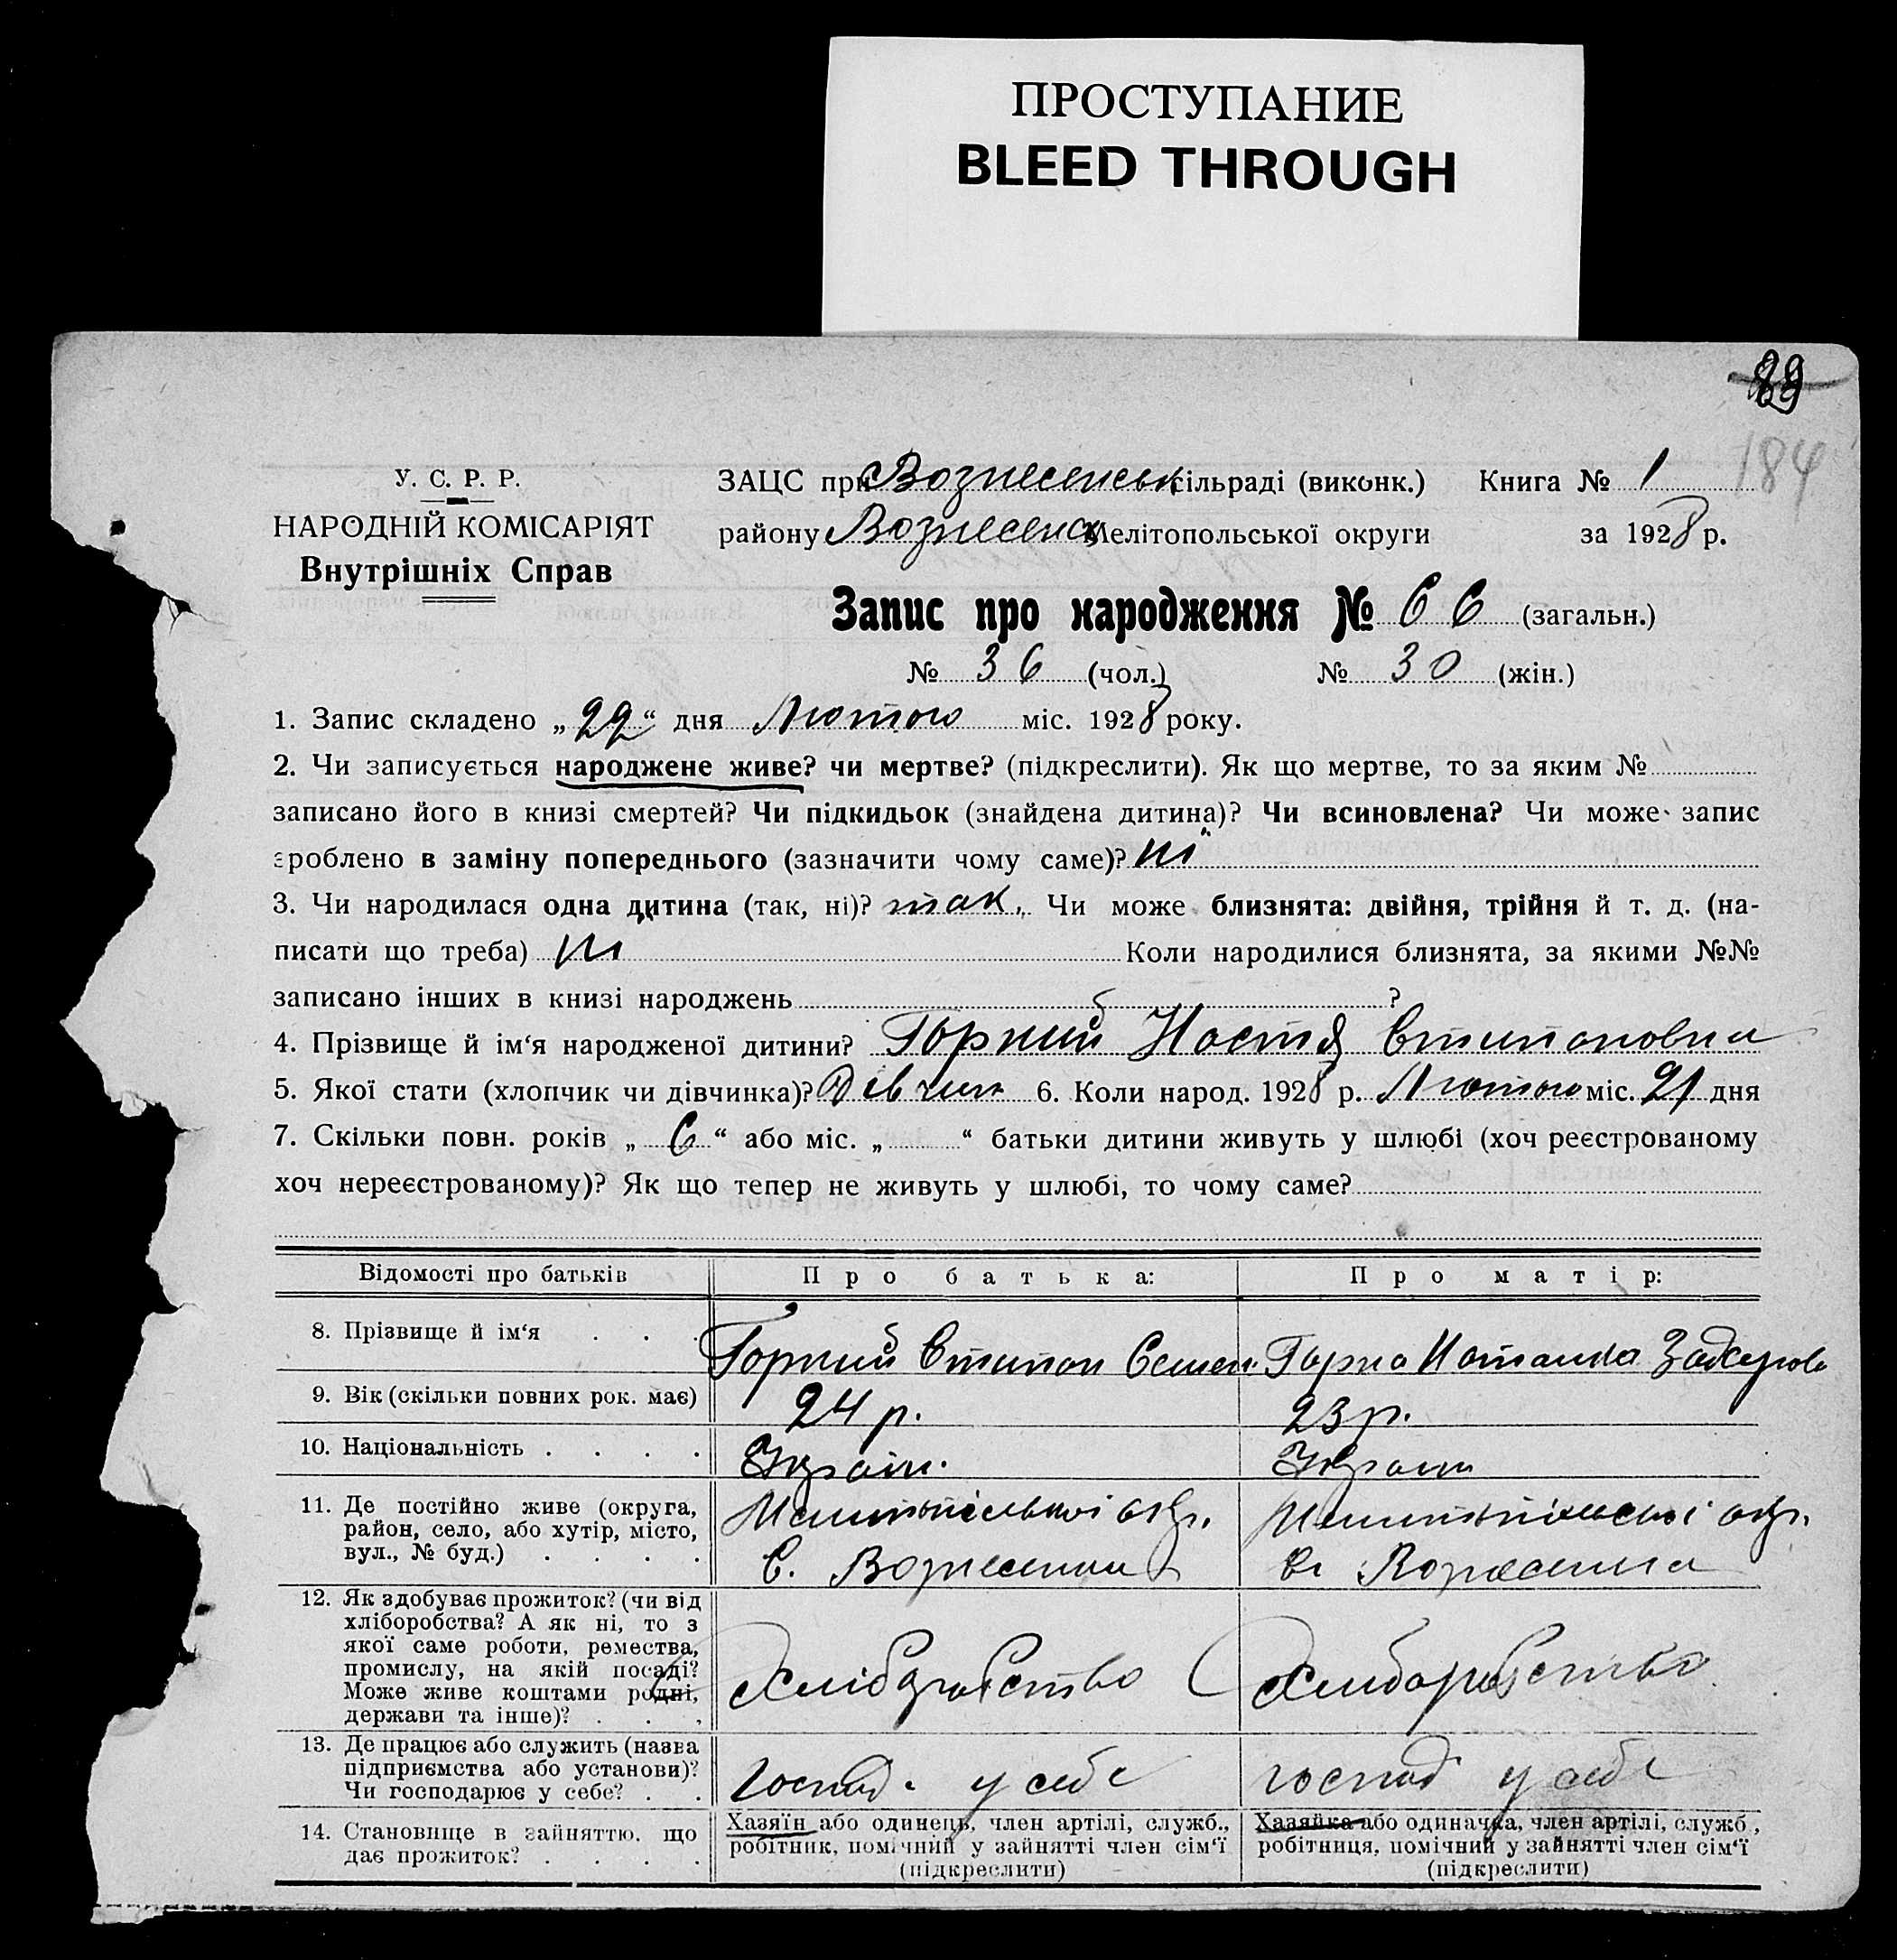 ПРОСТУПАНИЕ
BLEED THROUGH
89
184
У. С. Р. Р.
НАРОДНІЙ КОМІСАРІЯТ
Внутрішніх Справ
ЗАЦС при Вознесенськ сільраді (виконк.) Книга № 1
району Вознесенськ Мелітопольської округи за 1928 р.
Запис про народження № 66 (загальн.)
№ 36 (чол.) № 30 (жін.)
1. Запис складено „22“ дня Лютого міс. 1928 року.
2. Чи записується народжене живе? чи мертве? (підкреслити). Як що мертве, то за яким №
записано його в книзі смертей? Чи підкидьок (знайдена дитина)? Чи всиновлена? Чи може запис
зроблено в заміну попереднього (зазначити чому саме)? ні
3. Чи народилася одна дитина (так, ні)? так. Чи може близнята: двійня, трійня й т. д. (на-
писати що треба) ні Коли народилися близнята, за якими №№
записано інших в книзі народжень ?
4. Прізвище й ім‘я народженої дитини? Горний Настя Степановна
5. Якої стати (хлопчик чи дівчинка)? Дівчин 6. Коли народ. 1928 р. Лютого міс. 21 дня
7. Скільки повн. років „6“ або міс. „ “ батьки дитини живуть у шлюбі (хоч реєстрованому
хоч нереєстрованому)? Як що тепер не живуть у шлюбі, то чому саме?
Відомості про батьків Про батька: Про матір:
8. Прізвище й ім‘я . . . Горний Степан Семен. Горна Наталка
9. Вік (скільки повних рок. має) 24 р. 23 р.
10. Національність . . . . Україн. Україн
11. Де постійно живе (округа,
район, село, або хутір, місто,
вул., № буд.) . . . .
Мелитопільської окр. Мелитопільської окр.
С. Вознесенка С. Вознесенка
12. Як здобуває прожиток? (чи від
хліборобства? А як ні, то з
якої саме роботи, ремества,
промислу, на якій посаді?
Може живе коштами родні,
держави та інше)? . . .
Хліборобство Хлиборобство
13. Де працює або служить (назва
підприємства або установи)?
Чи господарює у себе? . .
господ. у себе господ у себе
14. Становище в зайняттю, що
дає прожиток? . . . .
Хазяїн або одинець, член артілі, служб.,
робітник, помічний у зайнятті член сім‘ї
(підкреслити)
Хазяйка або одиначка, член артілі, служб.,
робітниця, помічний у зайнятті член сім‘ї
(підкреслити)